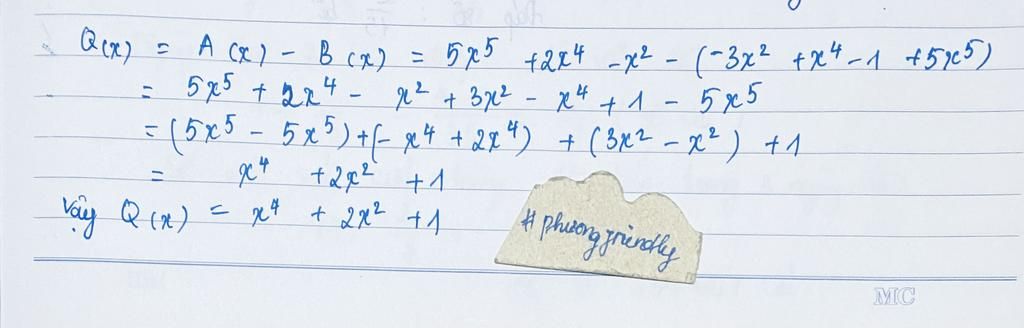 Q(x) = A(x) - B(x) = 5x⁵ + 2x⁴ - x² - (-3x² + x⁴ - 1 + 5x⁵)
= 5x⁵ + 2x⁴ - x² + 3x² - x⁴ + 1 - 5x⁵
= (5x⁵ - 5x⁵) + (- x⁴ + 2x⁴) + (3x² - x²) + 1
= x⁴ + 2x² + 1
Vậy Q(x) = x⁴ + 2x² + 1
# phuongfriendly
MC